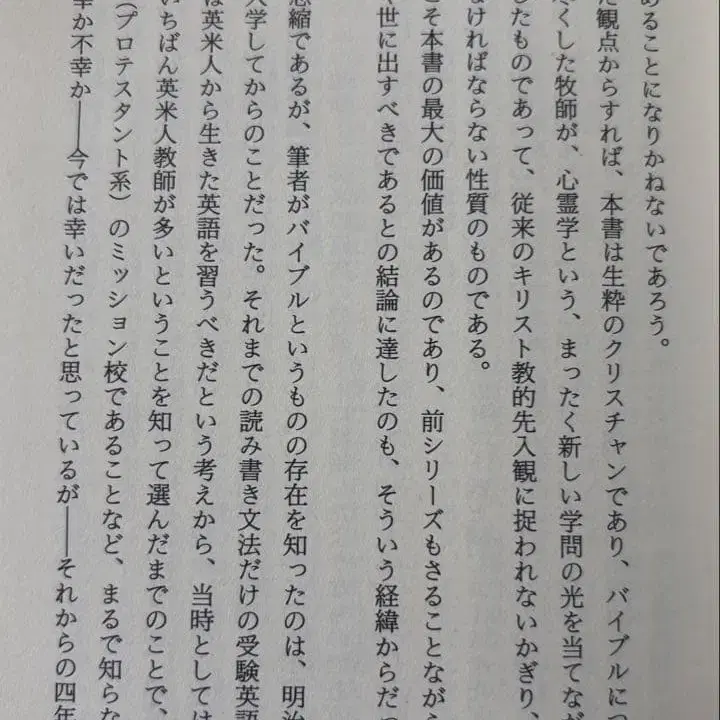 あることになりかねないであろう。
た観点からすれば、本書は生粋のクリスチャンであり、バイブルにつ
尽くした牧師が、心霊学という、まったく新しい学問の光を当てなが
したものであって、従来のキリスト教的先入観に捉われないかぎり、
なければならない性質のものである。
こそ本書の最大の価値があるのであり、前シリーズもさることながら
世に出すべきであるとの結論に達したのも、そういう経緯からだっ
恐縮であるが、筆者がバイブルというものの存在を知ったのは、明治
入学してからのことだった。それまでの読み書き文法だけの受験英語
は英米人から生きた英語を習うべきだという考えから、当時としては
いちばん英米人教師が多いということを知って選んだまでのことで、
（プロテスタント系）のミッション校であることなど、まるで知らな
幸か不幸か――今では幸いだったと思っているが――それからの四年